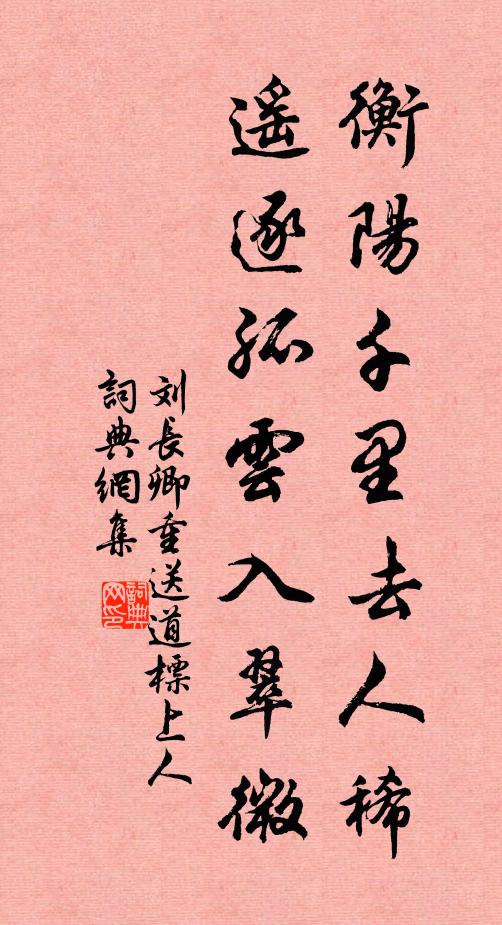 衡陽千里去人稀
遥逐孤雲入翠微
刘長卿重送道標上人
詞典網集
詞典网印